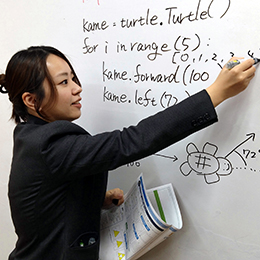 kame = turtle.Turtle()
for i in range(5):
[0, 1, 2, 3, 4
kame.forward(100
kame.left(72
100
72°